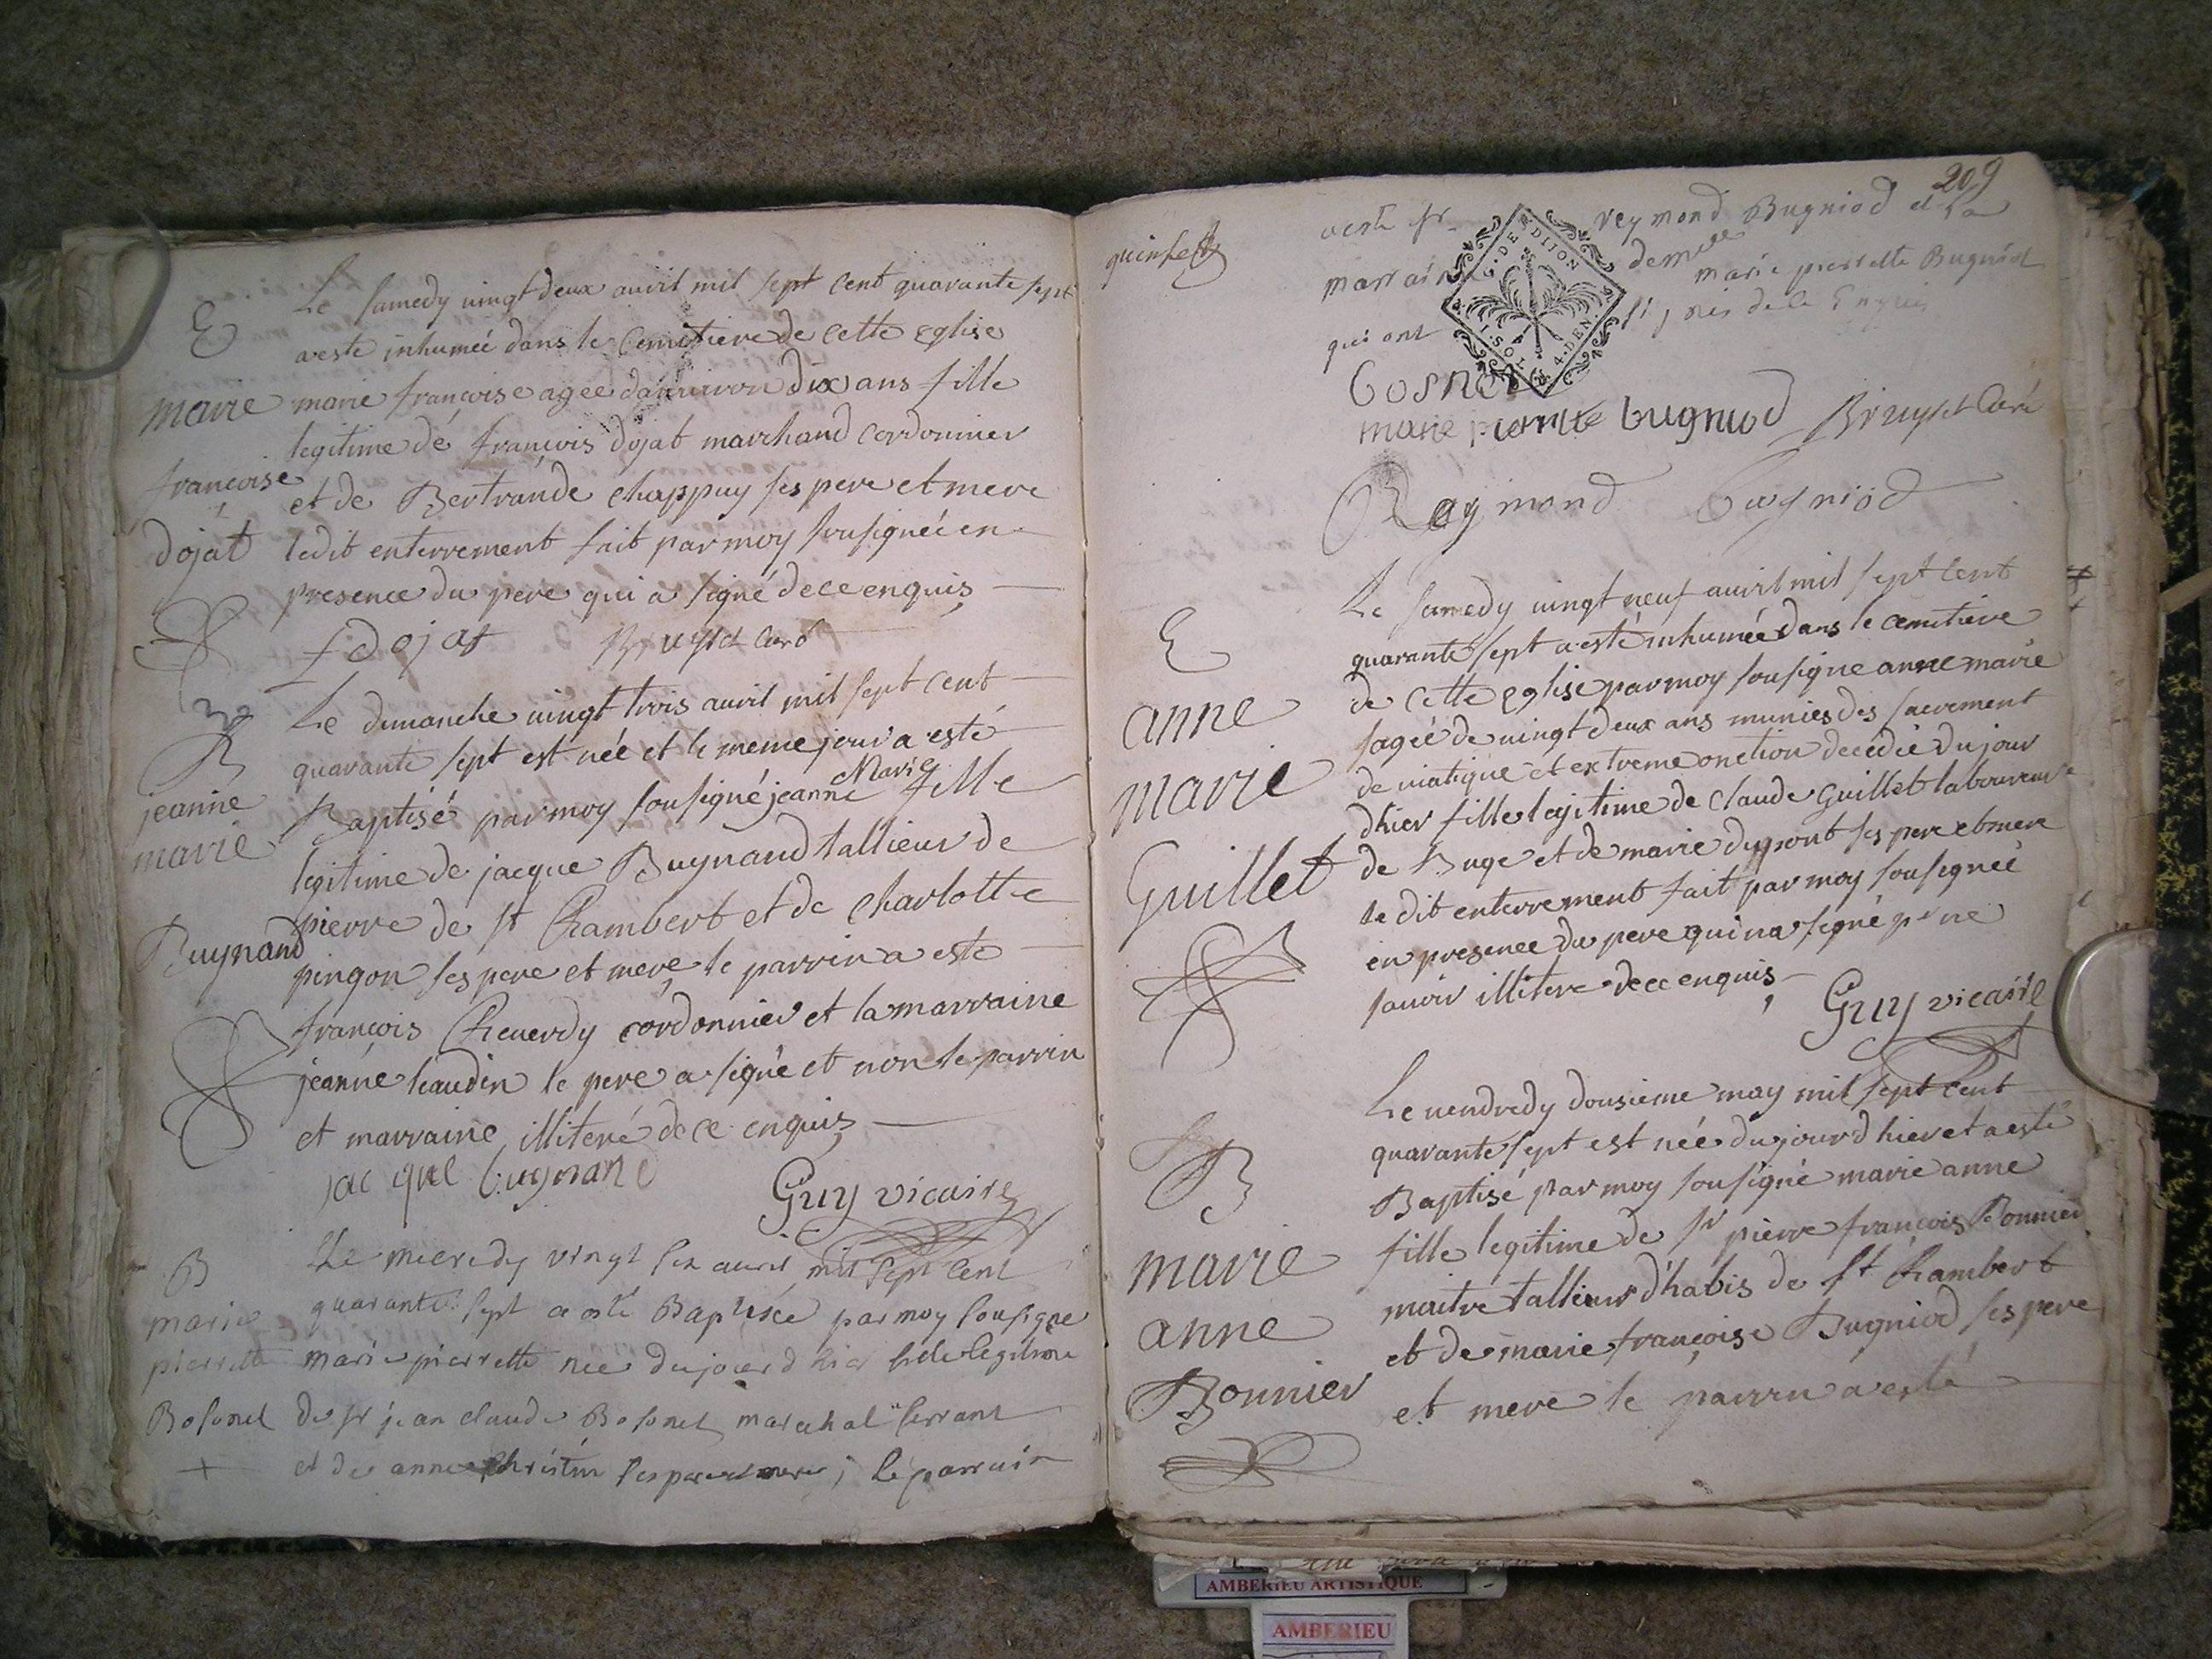 E
marie
françoise
dojat
Le samedy vingt deux avril mil sept cent quarante sept
a esté inhumée dans le cemitiere de cette eglise
marie françoise agee danviron dix ans fille
legitime de françois dojat marchand cordonnier
et de Bertrande chappuy ses pere et mere
ledit enterrement fait par moy sousignée en
presence du pere qui a signé de ce enquis
f dojat Bruyset Curé
B
jeanne
marie
Buynand
Le dimanche vingt trois avril mil sept cent
quarante sept est née et le meme jour a esté
Baptisé par moy sousigné jeanne Marie fille
legitime de jacque Buynand tallieur de
pierre de st Rambert et de charlotte
pingon ses pere et mere le parrin a esté
françois Cheverdy cordonnier et la marraine
jeanne baudin le pere a signé et non le parrin
et marraine illiteré de ce enquis
jacque bugnand
Guy vicaire
B
marie
pierrette
Bosonet
Le mecredy vingt six avril mil sept cent
quarante sept a esté Baptisée par moy sousigne
marie pierrette née dujourd hier fille legitime
de sr jean claude Bosonet marechal ferrant
et de anne christin ses pere et mere ; le parrain
209
a esté sr reymond Bugniod et la
marraine demelle marie pierrette Bugniod
qui ont signés de ce Enquis
G. DE DIJON
1 SOL 4. DEN.
Bosnet
marie pierrette bugniod Bruyset Curé
Raymond Bugniod
E
anne
marie
Guillet
Le samedy vingt neuf avril mil sept cent
quarante sept a esté inhumée dans le cemitiere
de cette eglise par moy sousigne anne marie
agée de vingt deux ans munies des sacrement
de viatique et extreme onction decedée du jour
dhier fille legitime de claude Guillet laboureur
de Buge et de marie dupont ses pere et mere
le dit enterrement fait par moy sousignée
en presence du pere qui na signé pr ne
savoir illitere de ce enquis
Guy vicaire
B
marie
anne
Bonnier
Le vendredy dousieme may mil sept cent
quarante sept est née du jour d hier et a esté
Baptisé par moy sousigné marie anne
fille legitime de sr pierre françois Bonnier
maitre tallieur d'habis de st Rambert
et de marie françoise Bugniod ses pere
et mere le parrin a esté
AMBERIEU ARTISTIQUE
AMBERIEU